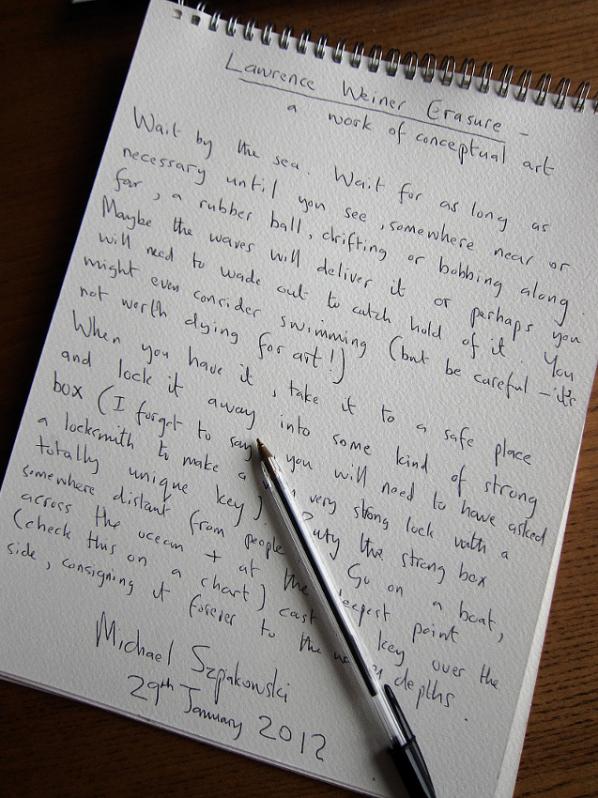 Lawrence Weiner Erasure -
a work of conceptual art
Wait by the sea. Wait for as long as
necessary until you see, somewhere near or
far, a rubber ball, drifting or bobbing along.
Maybe the waves will deliver it or perhaps you
will need to wade out to catch hold of it. You
might even consider swimming (but be careful - it's
not worth dying for art!)
When you have it, take it to a safe place
and lock it away into some kind of strong
box (I forgot to say you will need to have asked
a locksmith to make a very strong lock with a
totally unique key). the strong box
somewhere distant from people Go on a boat,
across the ocean + at the deepest point
(check this on a chart) cast key over the
side, consigning it forever to the depths.
Michael Szpakowski
29th January 2012